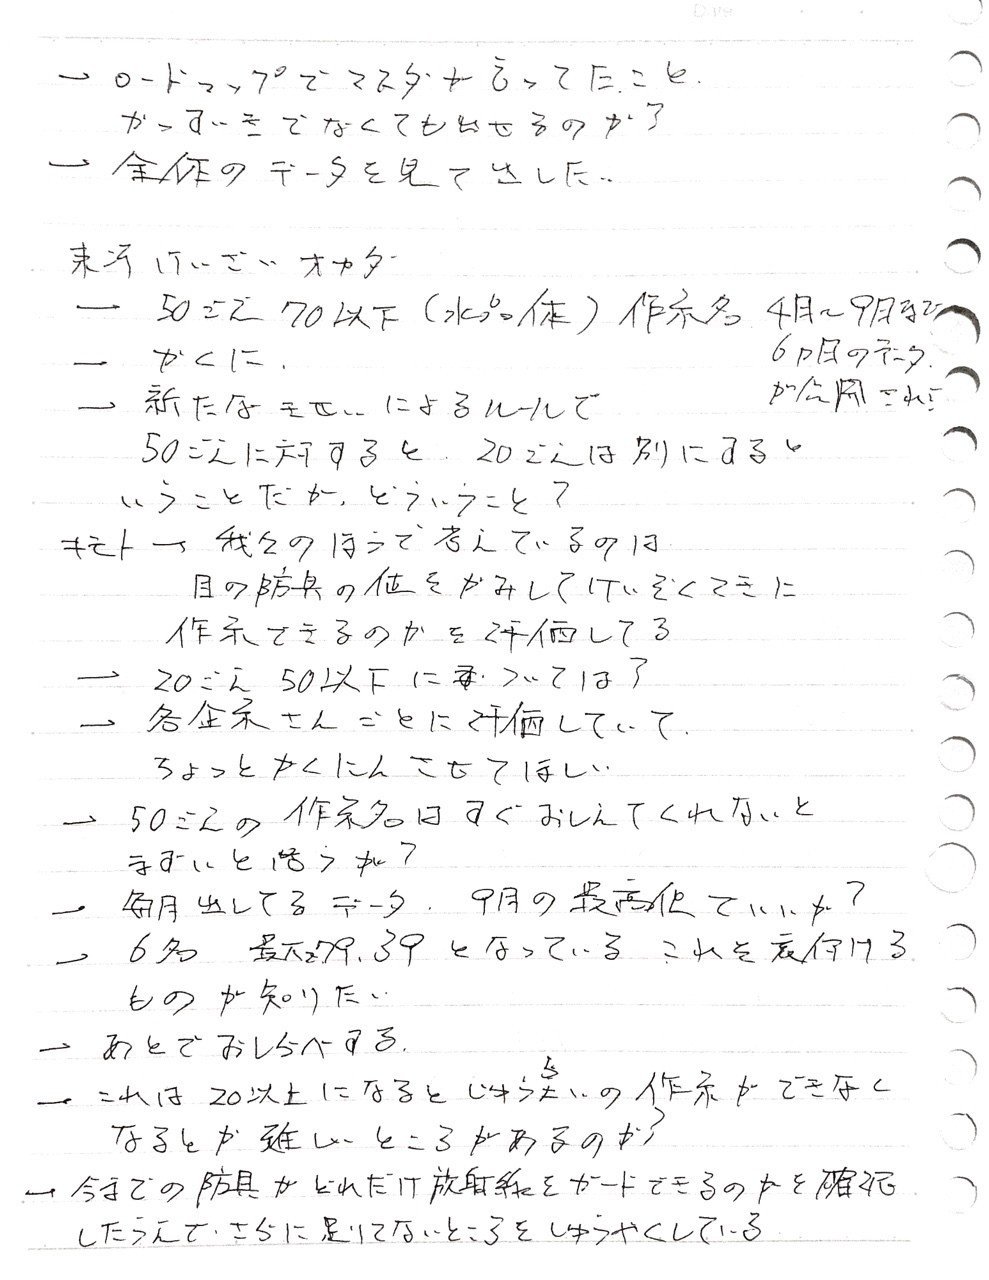 → ロードマップでマスダが言ってたこと.
かっすいきでなくても出せるのか?
→ 全作のデータを見て出した..
東洋けいざい オカダ
→ 50ごえ 70以下 ( ) 作業名 4月〜9月まで
6ヵ月のデータ.
が公開され
→ かくに.
→ 新たな によるルールで
50ごえに対すると. 20ごえは別にすると
いうことだが、どういうこと?
キモト → 我々のほうで考えているのは
目の防具の値をかみしてけいぞくてきに
作業できるのかを評価してる
→ 20ごえ 50以下に ついては?
→ 各企業さんごとに評価していて.
ちょっとかくにんさせてほしい
→ 50ごえの作業名はすぐおしえてくれないと
まずいと思うが?
→ 毎月出してるデータ. 9月の最高値でいいか?
→ 6名 最大79.39となっている これを裏付ける
ものが知りたい
→ あとでおしらべする.
→ これは20以上になるとじゅうらいの作業ができなく
なるとか難しいところがあるのか?
→ 今までの防具がどれだけ放射線をガードできるのかを確認
したうえで、さらに足りてないところをしゅうやくしている